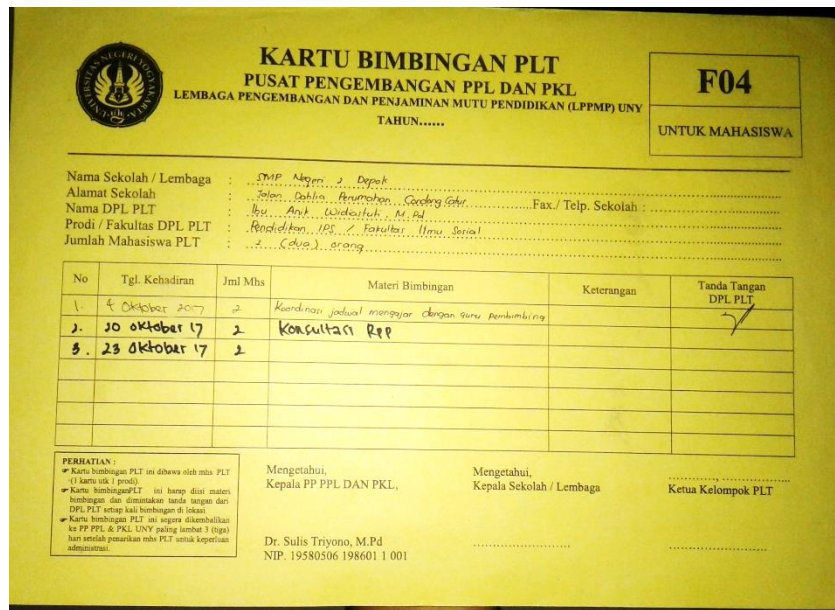 UNIVERSITAS NEGERI YOGYAKARTA
KARTU BIMBINGAN PLT
PUSAT PENGEMBANGAN PPL DAN PKL
LEMBAGA PENGEMBANGAN DAN PENJAMINAN MUTU PENDIDIKAN (LPPMP) UNY
TAHUN......
F04
UNTUK MAHASISWA
Nama Sekolah / Lembaga : SMP Negeri 2 Depok
Alamat Sekolah : Jalan Dahlia Perumahan Condong Catur Fax./ Telp. Sekolah :
Nama DPL PLT : Ibu Anik Widiastuti, M.Pd
Prodi / Fakultas DPL PLT : Pendidikan IPS / Fakultas Ilmu Sosial
Jumlah Mahasiswa PLT : 2 (dua) orang
No Tgl. Kehadiran Jml Mhs Materi Bimbingan Keterangan Tanda Tangan DPL PLT
1. 4 Oktober 2017 2 Koordinasi jadwal mengajar dengan guru pembimbing
2. 20 Oktober 17 2 Konsultasi RPP
3. 23 Oktober 17 2
PERHATIAN :
☞ Kartu bimbingan PLT ini dibawa oleh mhs PLT
(1 kartu utk 1 prodi).
☞ Kartu bimbinganPLT ini harap diisi materi
bimbingan dan dimintakan tanda tangan dari
DPL PLT setiap kali bimbingan di lokasi.
☞ Kartu bimbingan PLT ini segera dikembalikan
ke PP PPL & PKL UNY paling lambat 3 (tiga)
hari setelah penarikan mhs PLT untuk keperluan
administrasi.
Mengetahui,
Kepala PP PPL DAN PKL,
Dr. Sulis Triyono, M.Pd
NIP. 19580506 198601 1 001
Mengetahui,
Kepala Sekolah / Lembaga
Ketua Kelompok PLT